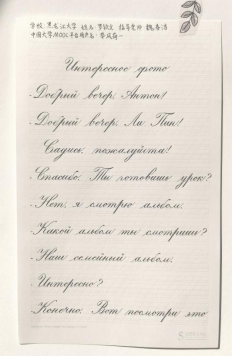 学校:黑龙江大学 姓名: 指导老师: 魏春清
中国大学MOOC平台用户名:
Интересное фото
- Добрый вечер, Антон!
- Добрый вечер, Ли Пин!
Садись, пожалуйста!
- Спасибо. Ты готовишь урок?
- Нет, я смотрю альбом.
- Какой альбом ты смотришь?
- Наш семейный альбом.
- Интересно?
- Конечно. Вот посмотри это